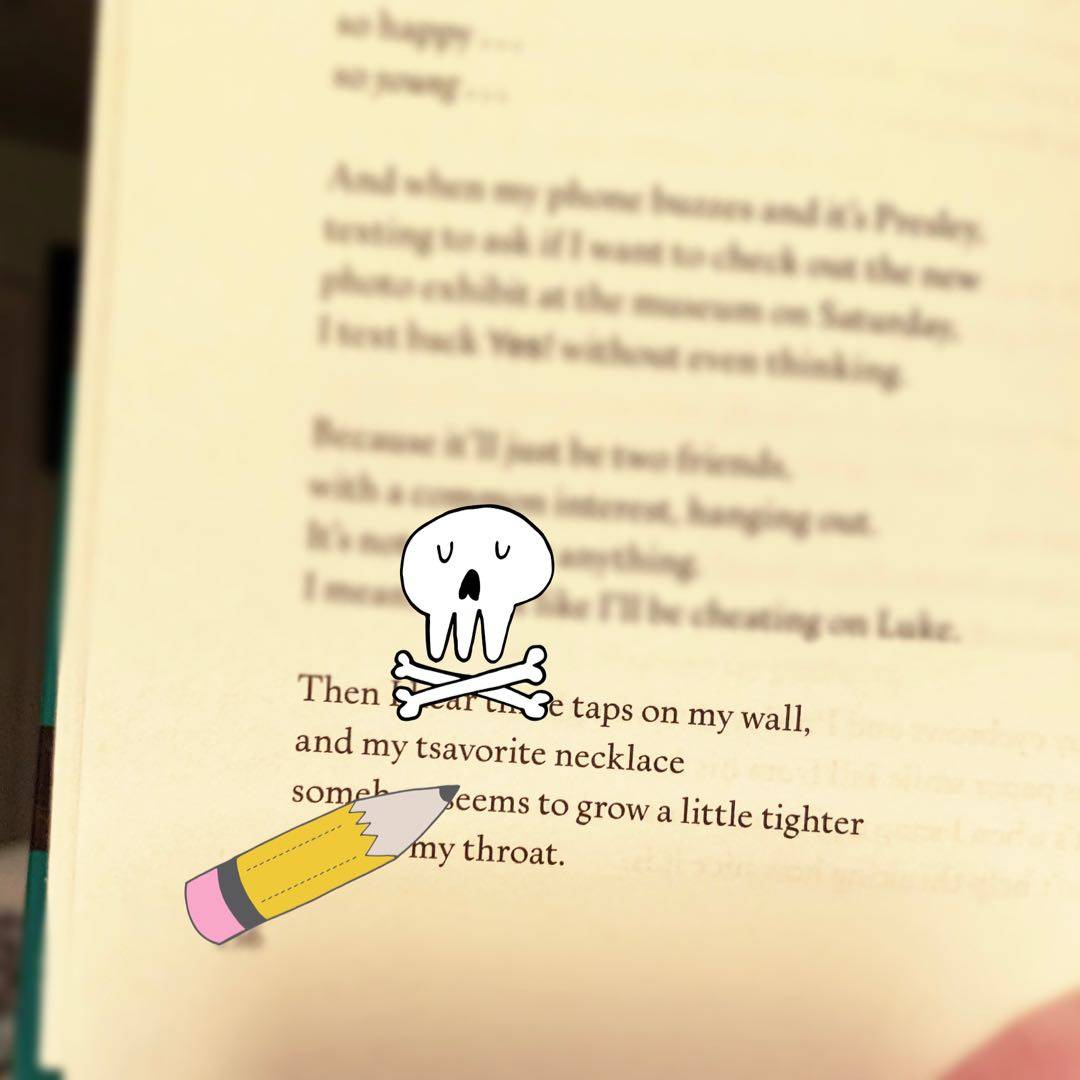 so happy . . .
so young . . .
And when my phone buzzes and it's Presley,
texting to ask if I want to check out the new
photo exhibit at the museum on Saturday,
I text back Yes! without even thinking.
Because it'll just be two friends,
with a common interest, hanging out.
It's not anything.
I mean like I'll be cheating on Luke.
Then I hear three taps on my wall,
and my tsavorite necklace
seems to grow a little tighter
my throat.